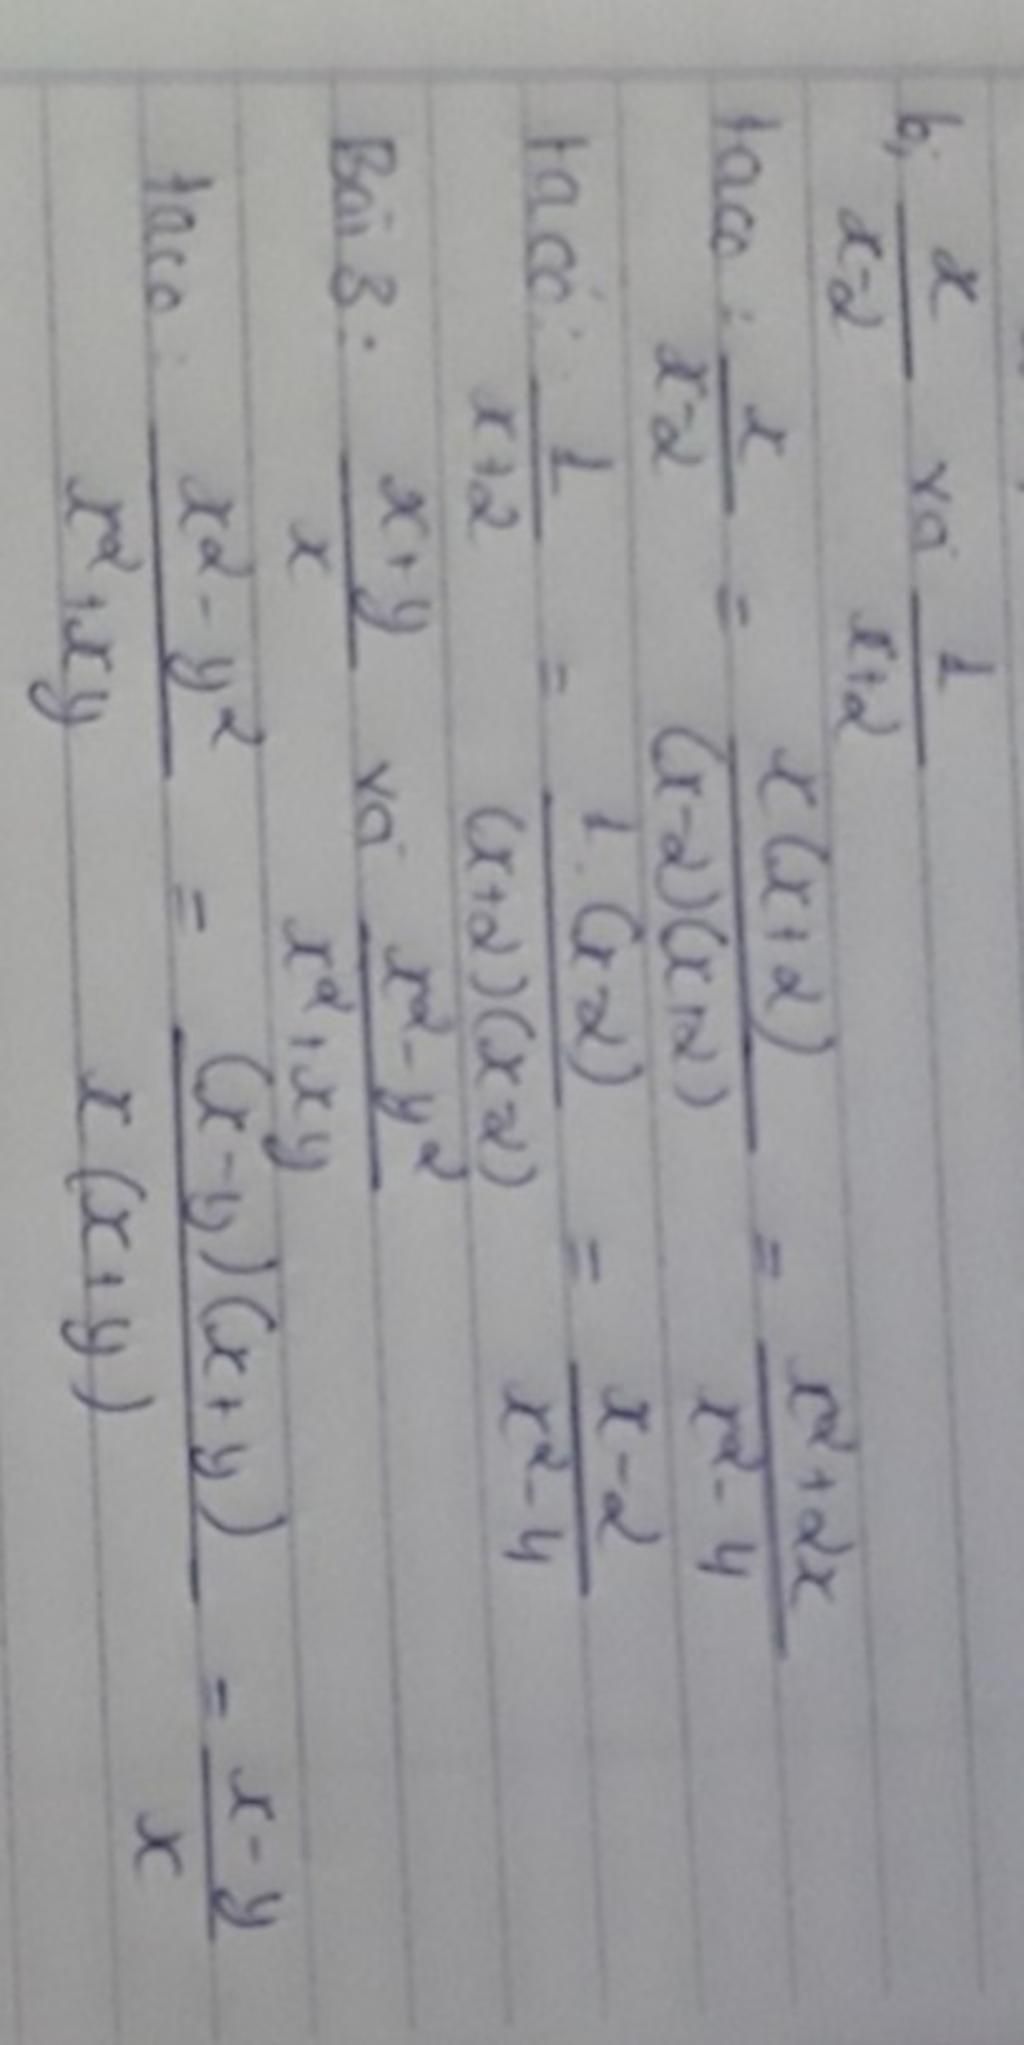 b, x/(x-2) và 1/(x+2)
ta co : x/(x-2) = x(x+2)/((x-2)(x+2)) = (x²+2x)/(x²-4)
ta có : 1/(x+2) = 1.(x-2)/((x+2)(x-2)) = (x-2)/(x²-4)
Bài 3 : (x+y)/x và (x²-y²)/(x²+xy)
ta co : (x²-y²)/(x²+xy) = (x-y)(x+y)/(x(x+y)) = (x-y)/x